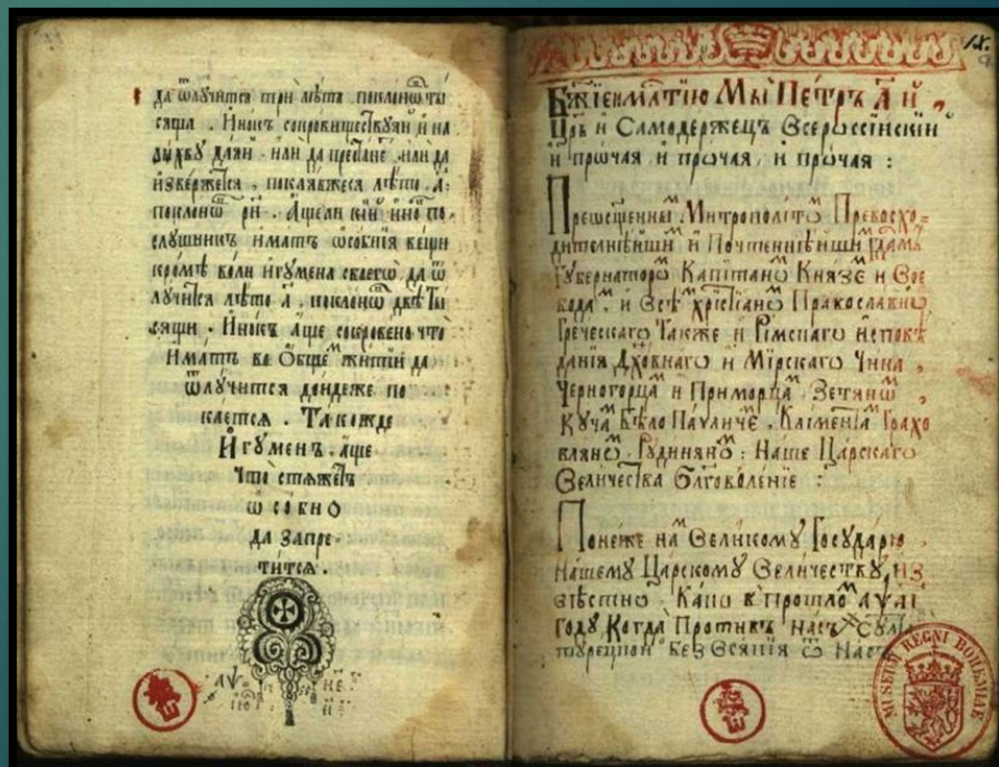 да ѿлучится три лѣта поклонѡ ты
сяща . Инокъ сокровиществуяй и на
лихву даяй . или да престанет или да
извержется , покаявжеся лѣто .а҃.
поклонѡ рн . Аще ли кїй инѡ по
слушникъ имать ѡсобнїя вещи
кромѣ воли игумена своегѡ да ѿ
лучится лѣто а҃ , поклонѡ двѣ ты
сящи . Инокъ аще сокровено что
имать во ѻбщем житїи да
ѿлучится дондеже по
кается . Такожде
Игуменъ . аще
что стяжет
ѡсобно
да запре
тится .
Бж҃їею млⷭ҇тїю Мы Петръ А҃ й ,
Цр҃ь и Самодержецъ Всероссїйскїй
и прѡчая и прѡчая , и прѡчая :
Преѡсщ҃еннымъ Митрополітѡмъ Превосхо=
дителнѣйшимъ и Почтеннѣйшимъ Гдⷭ҇амъ
Губернаторѡмъ Капітанѡмъ Князем и Вое
водамъ , и Всѣмъ Хрістїанѡмъ Православнѡ
Греческагѡ Также и Рімскагѡ исповѣ
данїя Дх҃овнагѡ и Мїрскагѡ Чина ,
Черногорцамъ и Приморцамъ . Зетянѡмъ
Кучамъ Бѣло Пауличемъ . Кліментамъ Грахо
влянѡмъ . Рудинянѡмъ : Наше Царскагѡ
Величества Блг҃оволенїе :
Понеже намъ Великому Государю .
Нашему Царскому Величеству , из
вѣстно , Како в прошломъ ҂аѱаі
году Когда Противъ насъ Сул
турецкой без Всякїя ѿ Насъ
MUSEUM REGNI BOHEMIAE